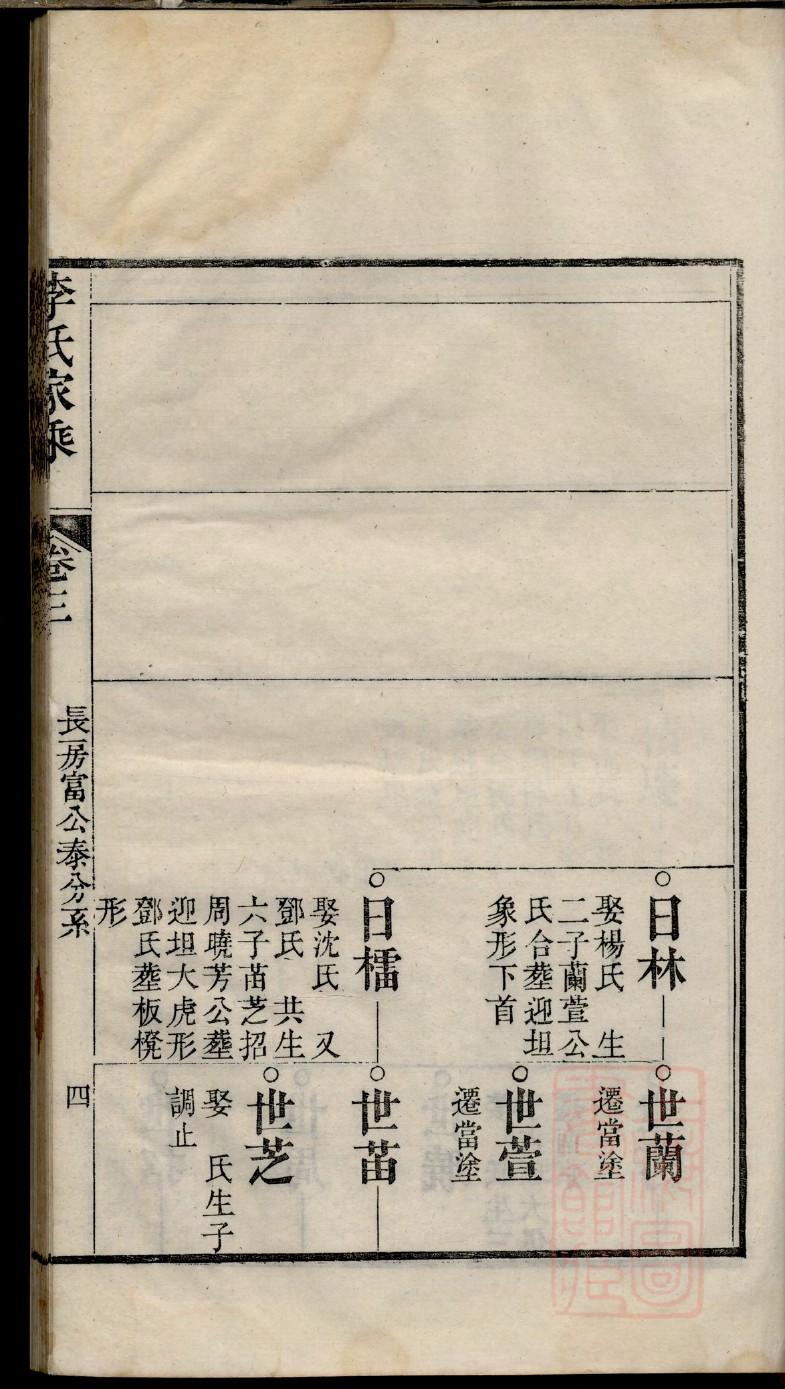 日林
娶楊氏 生
二子蘭萱公
氏合塟迎坦
象形下首
日櫺
娶沈氏 又
鄧氏 共生
六子苖芝招
周曉芳公塟
迎坦大虎形
鄧氏塟板櫈
形
世蘭
遷當塗
世萱
遷當塗
世苖
世芝
娶 氏生子
調止
李氏家乘
卷三
長房富公泰分系
四